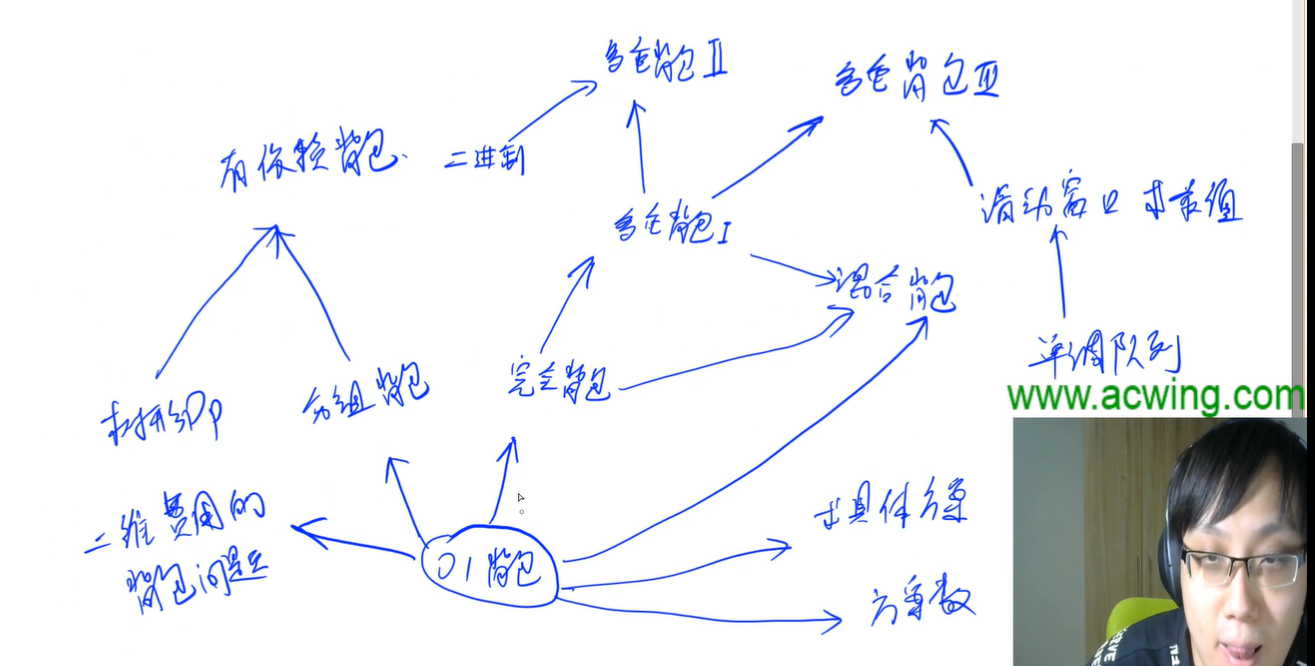 多重背包 II
多重背包 III
有依赖背包
二进制
多重背包 I
滑动窗口求最值
混合背包
单调队列
www.acwing.com
完全背包
分组背包
树形DP
二维费用的
背包问题
01背包
求具体方案
方案数